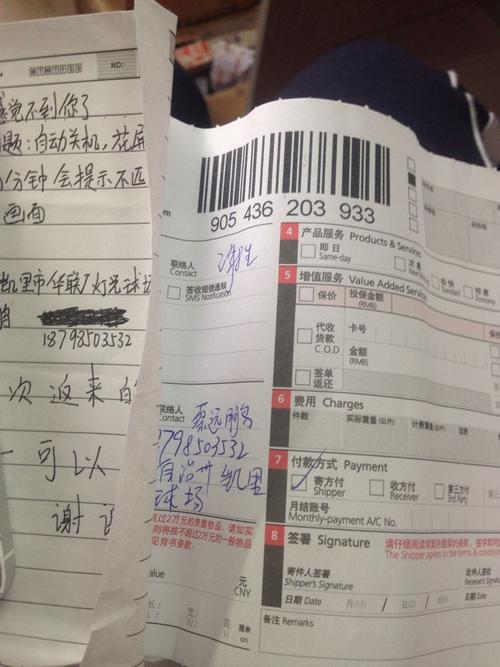 NO:
觉不到你了
题：自动关机，花屏
分钟会提示不匹
画面
凯里市华联厂灯光球场
18798503532
次返来的
一可以
谢
905 436 203 933
联络人
Contact
签收短信通知
SMS Notification
联络人
Contact
蔡远鹏
798503532
自治州凯里
球场
过2万元的贵重物品，请如实
则将按不超过2万元的一般物品
见背书条款。
alue
元
CNY
长/
L
宽/
W
高
H
厘米
cm
4 产品服务 Products & Services
即日
Same-day
次晨
特惠
Economy
5 增值服务 Value Added Service
保价
投保金额
(RMB)
代收
货款
C.O.D
卡号
金额
(RMB)
签单
返还
6 费用 Charges
件数
实际重量(公斤)
计费重量(公斤)
7 付款方式 Payment
寄方付
Shipper
收方付
Receiver
第三方付
3rd Party
月结账号
Monthly-payment A/C No.
8 签署 Signature
请仔细阅读背面所载契约条款，签字即同
The Shipper agrees to the terms & condition
寄件人签署
Shipper's Signature
收件人签署
Receiver's Signat
日期 Date
月(M)
日(D)
日期 Date
备注 Remarks